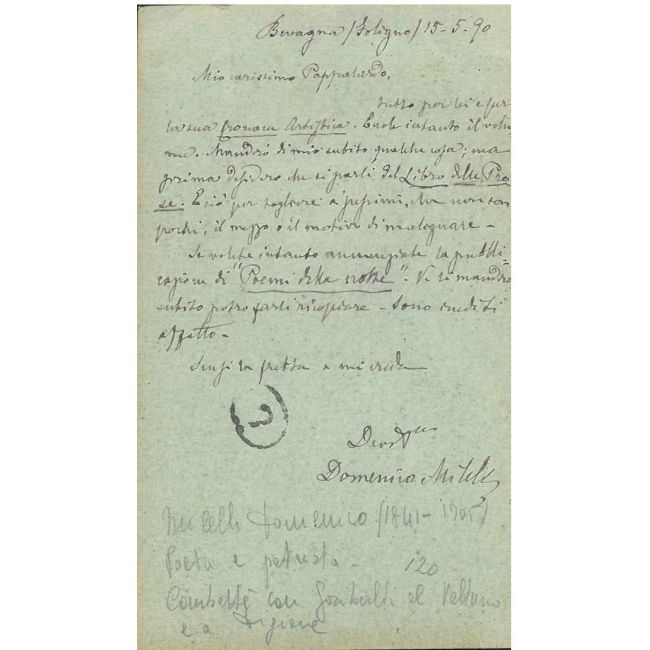 Bevagna (Foligno) 15-5-90
Mio carissimo Pappalardo,
Tutto per lei e per
la sua Cronaca Artistica. Ecole intanto il volu-
me. Manderò di mio subito qualche cosa; ma
prima desidero che si parli del Libro delle Pro-
se. E ciò per togliere a' pessimi, che non son
pochi, il mezzo o il motivo di malignare -
Se volete intanto annunziate la pubbli-
cazione di "Poemi della notte". Ve li manderò
subito potrò farli ricopiare - Sono inediti
affatto -
Scusi la fretta e mi creda
Domenico Milelli
Milelli Domenico (1841-1905)
Poeta e patriota - 120
Combatté con Garibaldi al Volturno
e a Digione